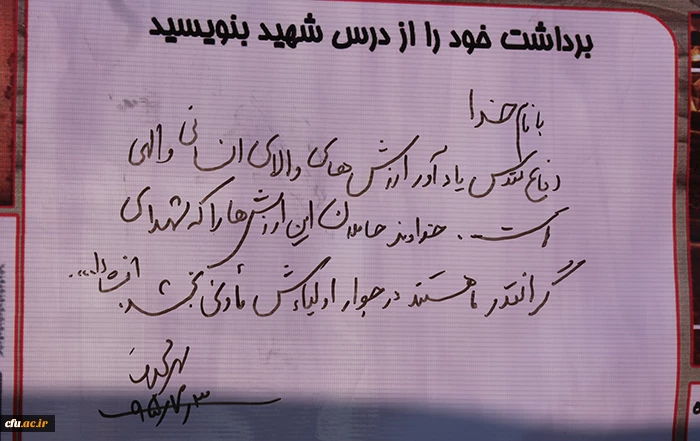 برداشت خود را از درس شهید بنویسید
بنام خدا
دفاع مقدس یادآور ارزش‌های والای انسانی و الهی
است. خداوند حاملان این ارزش‌ها را که شهدای
گرانقدر ما هستند در جوار اولیاءش مأوی بخشد. انشاءا...
۹۵/۷/۳
cfu.ac.ir